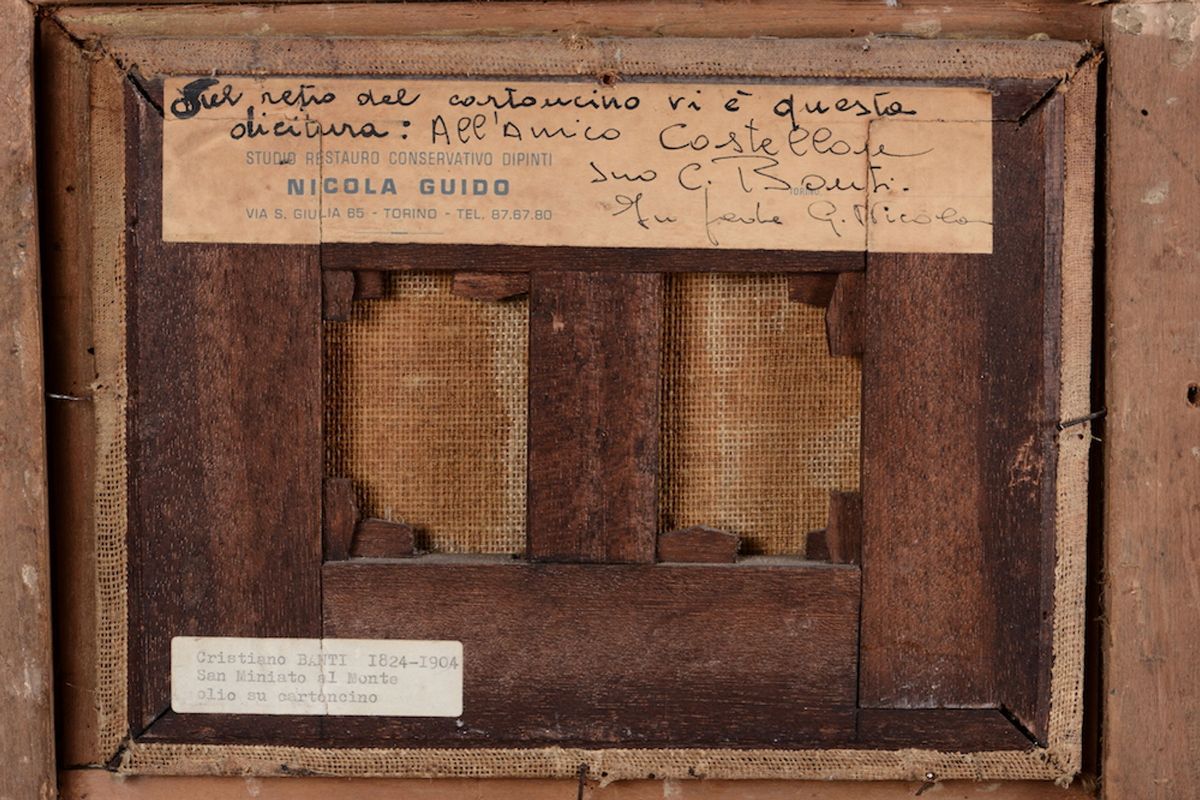 Sul retro del cartoncino vi è questa
dicitura: All'Amico Castellani
STUDIO RESTAURO CONSERVATIVO DIPINTI
suo C. Banti.
NICOLA GUIDO
TORINO
VIA S. GIULIA 65 - TORINO - TEL. 87.67.80
In fede G. Nicola
Cristiano BANTI 1824-1904
San Miniato al Monte
olio su cartoncino